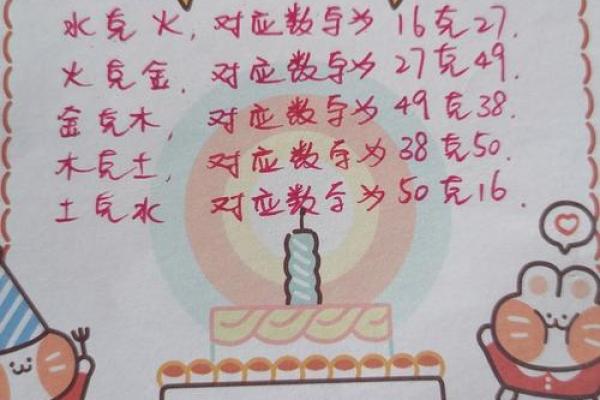 水克火，对应数字为16克27.
火克金，对应数字为27克49.
金克木，对应数字为49克38.
木克土，对应数字为38克50.
土克水 对应数字为50克16.